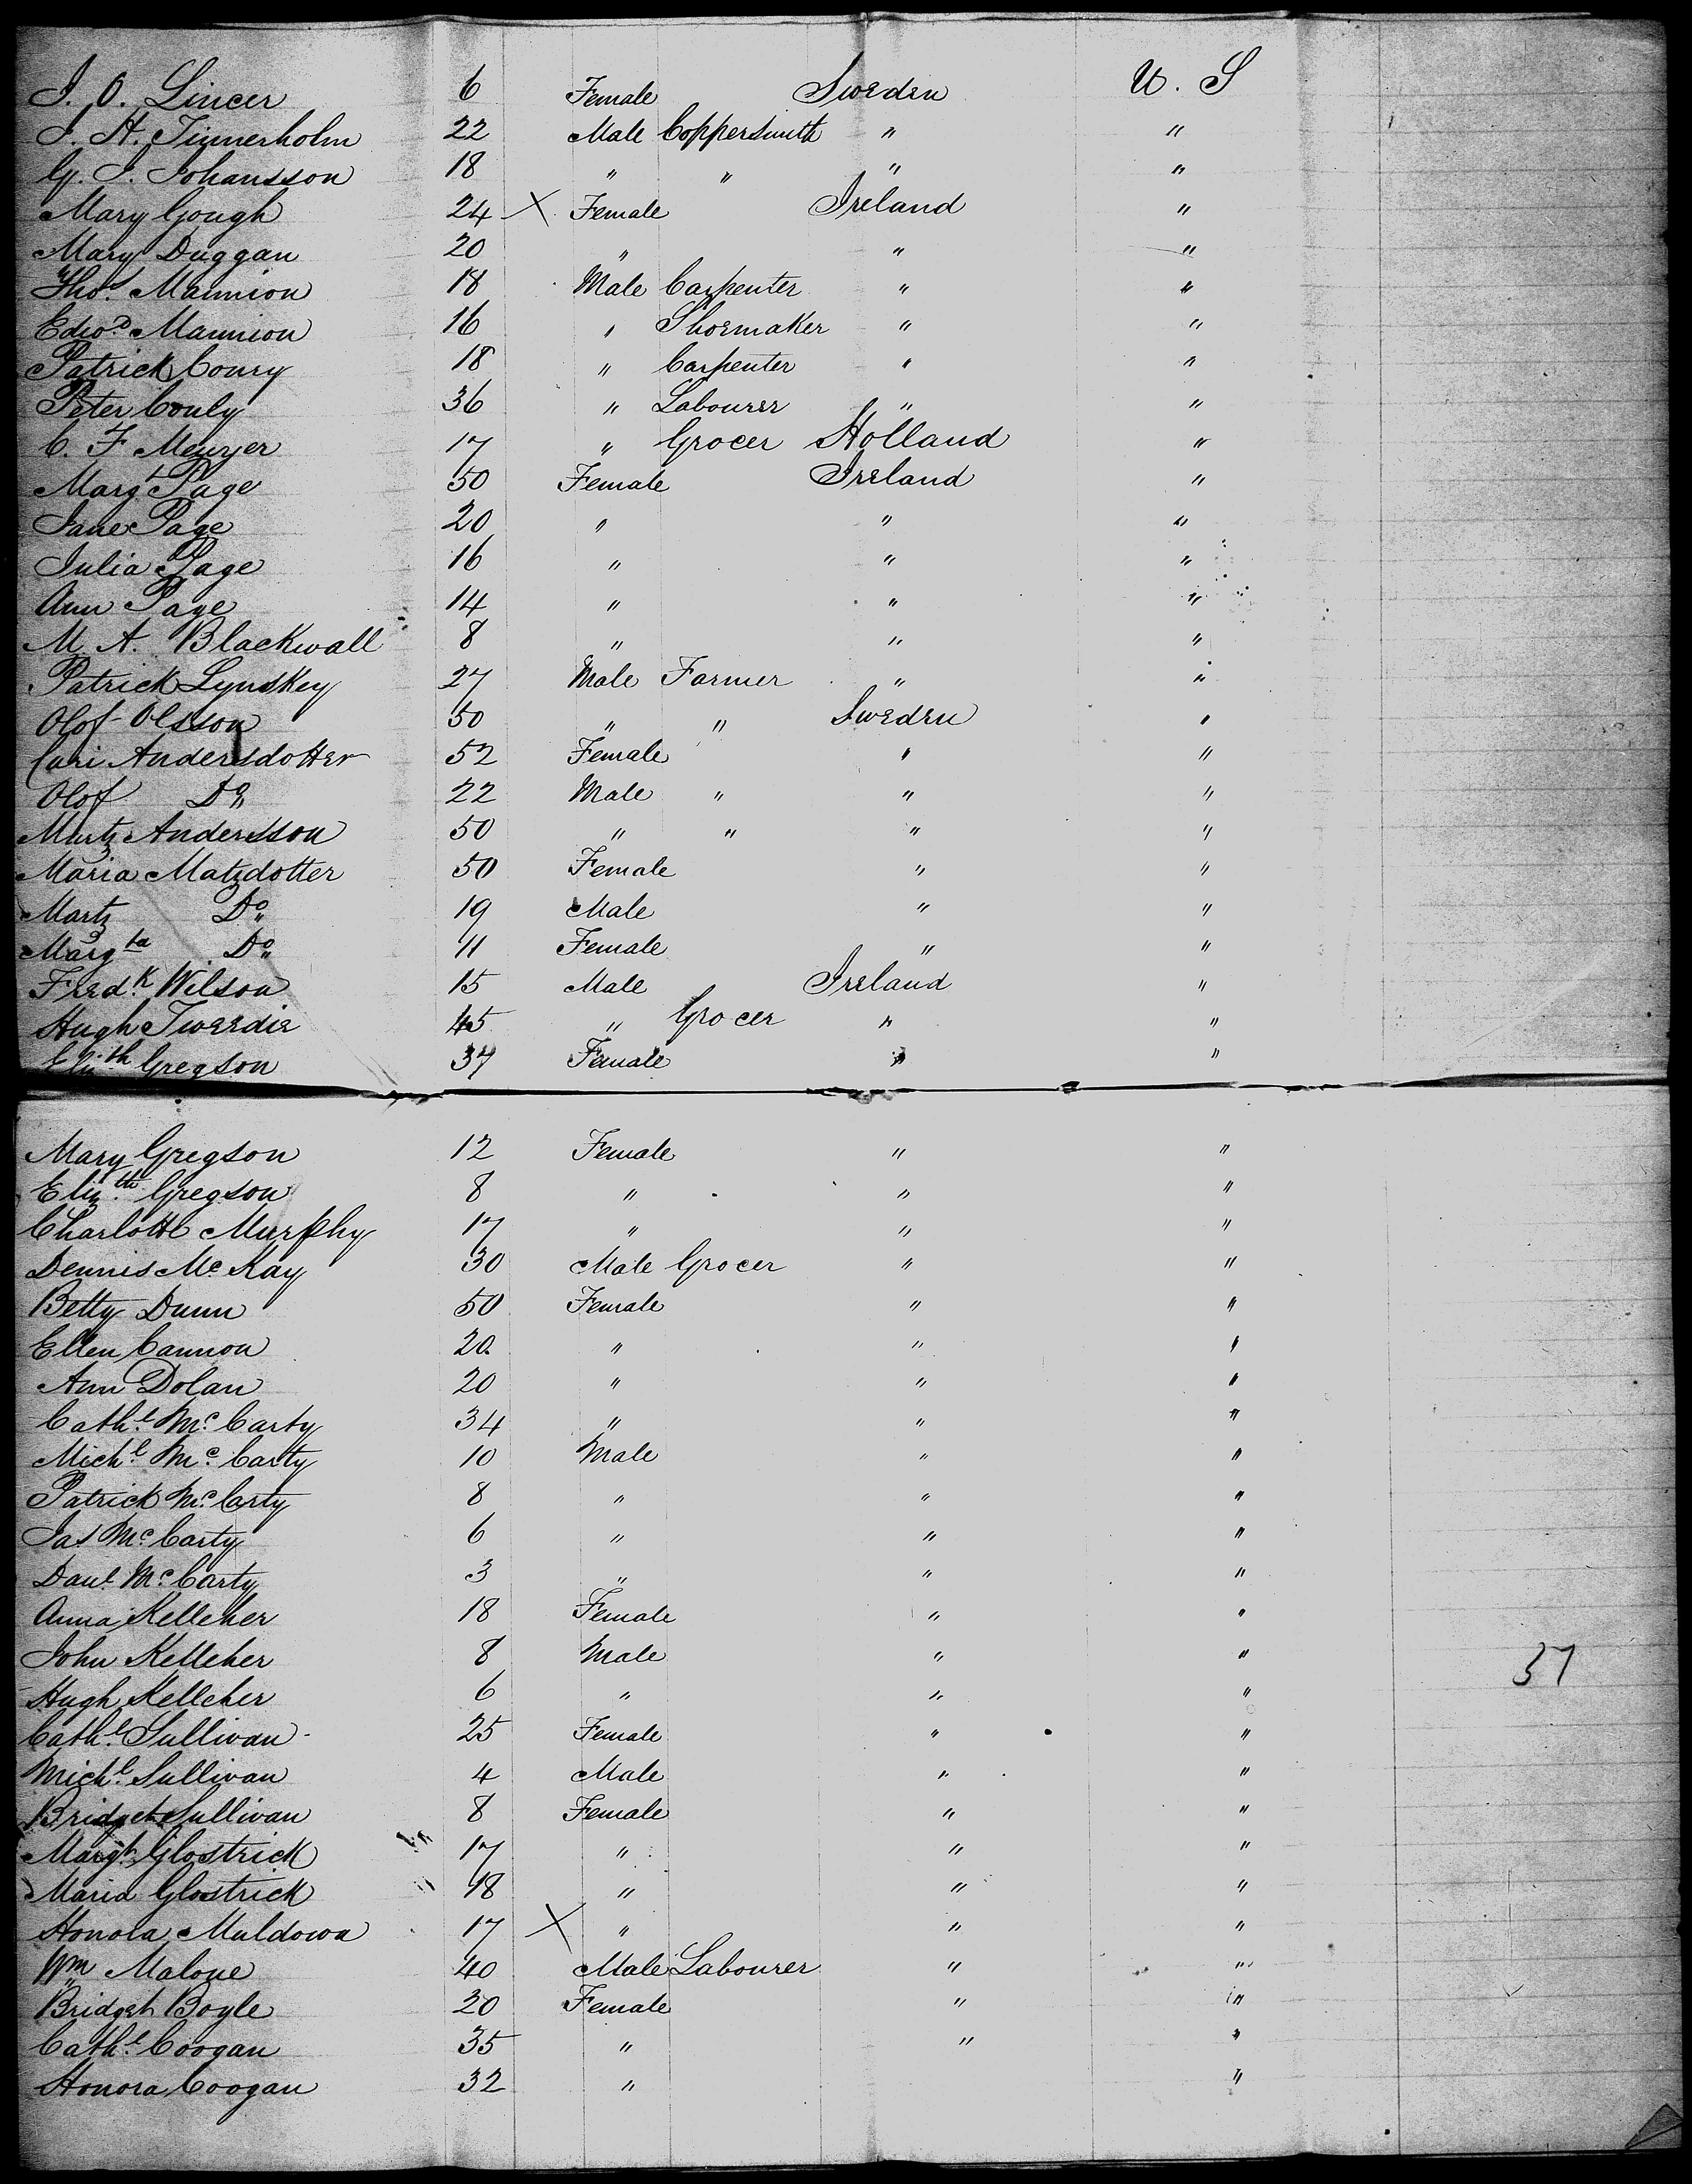 J. O. Lincer 6 Female Sweden U. S
J. H. Tinnerholm 22 Male Coppersmith " "
G. J. Johansson 18 " " " "
Mary Gough 24 X Female Ireland "
Mary Duggan 20 " " "
Thos. Mannion 18 Male Carpenter " "
Edwd. Mannion 16 " Shoemaker " "
Patrick Conry 18 " Carpenter " "
Peter Conly 36 " Labourer " "
C. F Meuyer 17 " Grocer Holland "
Margt Page 50 Female Ireland "
Jane Page 20 " " "
Julia Page 16 " " "
Ann Page 14 " " "
M. A. Blackwall 8 " " "
Patrick Lynskey 27 Male Farmer " "
Olof Olsson 50 " " Sweden "
Cari Andersdotter 52 Female " "
Olof Do 22 Male " " "
Martz Andersson 50 " " " "
Maria Matzdotter 50 Female " "
Martz Do 19 Male " "
Margta Do 11 Female " "
Fredk. Wilson 15 Male Ireland "
Hugh Tweedie 45 " Grocer " "
Elizth Gregson 37 Female " "
Mary Gregson 12 Female " "
Elizth. Gregson 8 " " "
Charlotte Murphy 17 " " "
Dennis Mc Kay 30 Male Grocer " "
Betty Dunn 50 Female " "
Ellen Cannon 20 " " "
Ann Dolan 20 " " "
Cathe. Mc Carty 34 " " "
Michl. Mc Carty 10 Male " "
Patrick Mc Carty 8 " " "
Jas Mc Carty 6 " " "
Danl Mc Carty 3 " " "
Anna Kelleher 18 Female " "
John Kelleher 8 Male " " 37
Hugh Kelleher 6 " " "
Cathe. Sullivan 25 Female " "
Michl. Sullivan 4 Male " "
Bridget Sullivan 8 Female " "
Margt. Glostrick 17 " " "
Maria Glostrick 18 " " "
Honora Muldowa 17 X " " "
Wm Malone 40 Male Labourer " "
Bridget Boyle 20 Female " "
Cathe. Coogan 35 " " "
Honora Coogan 32 " "